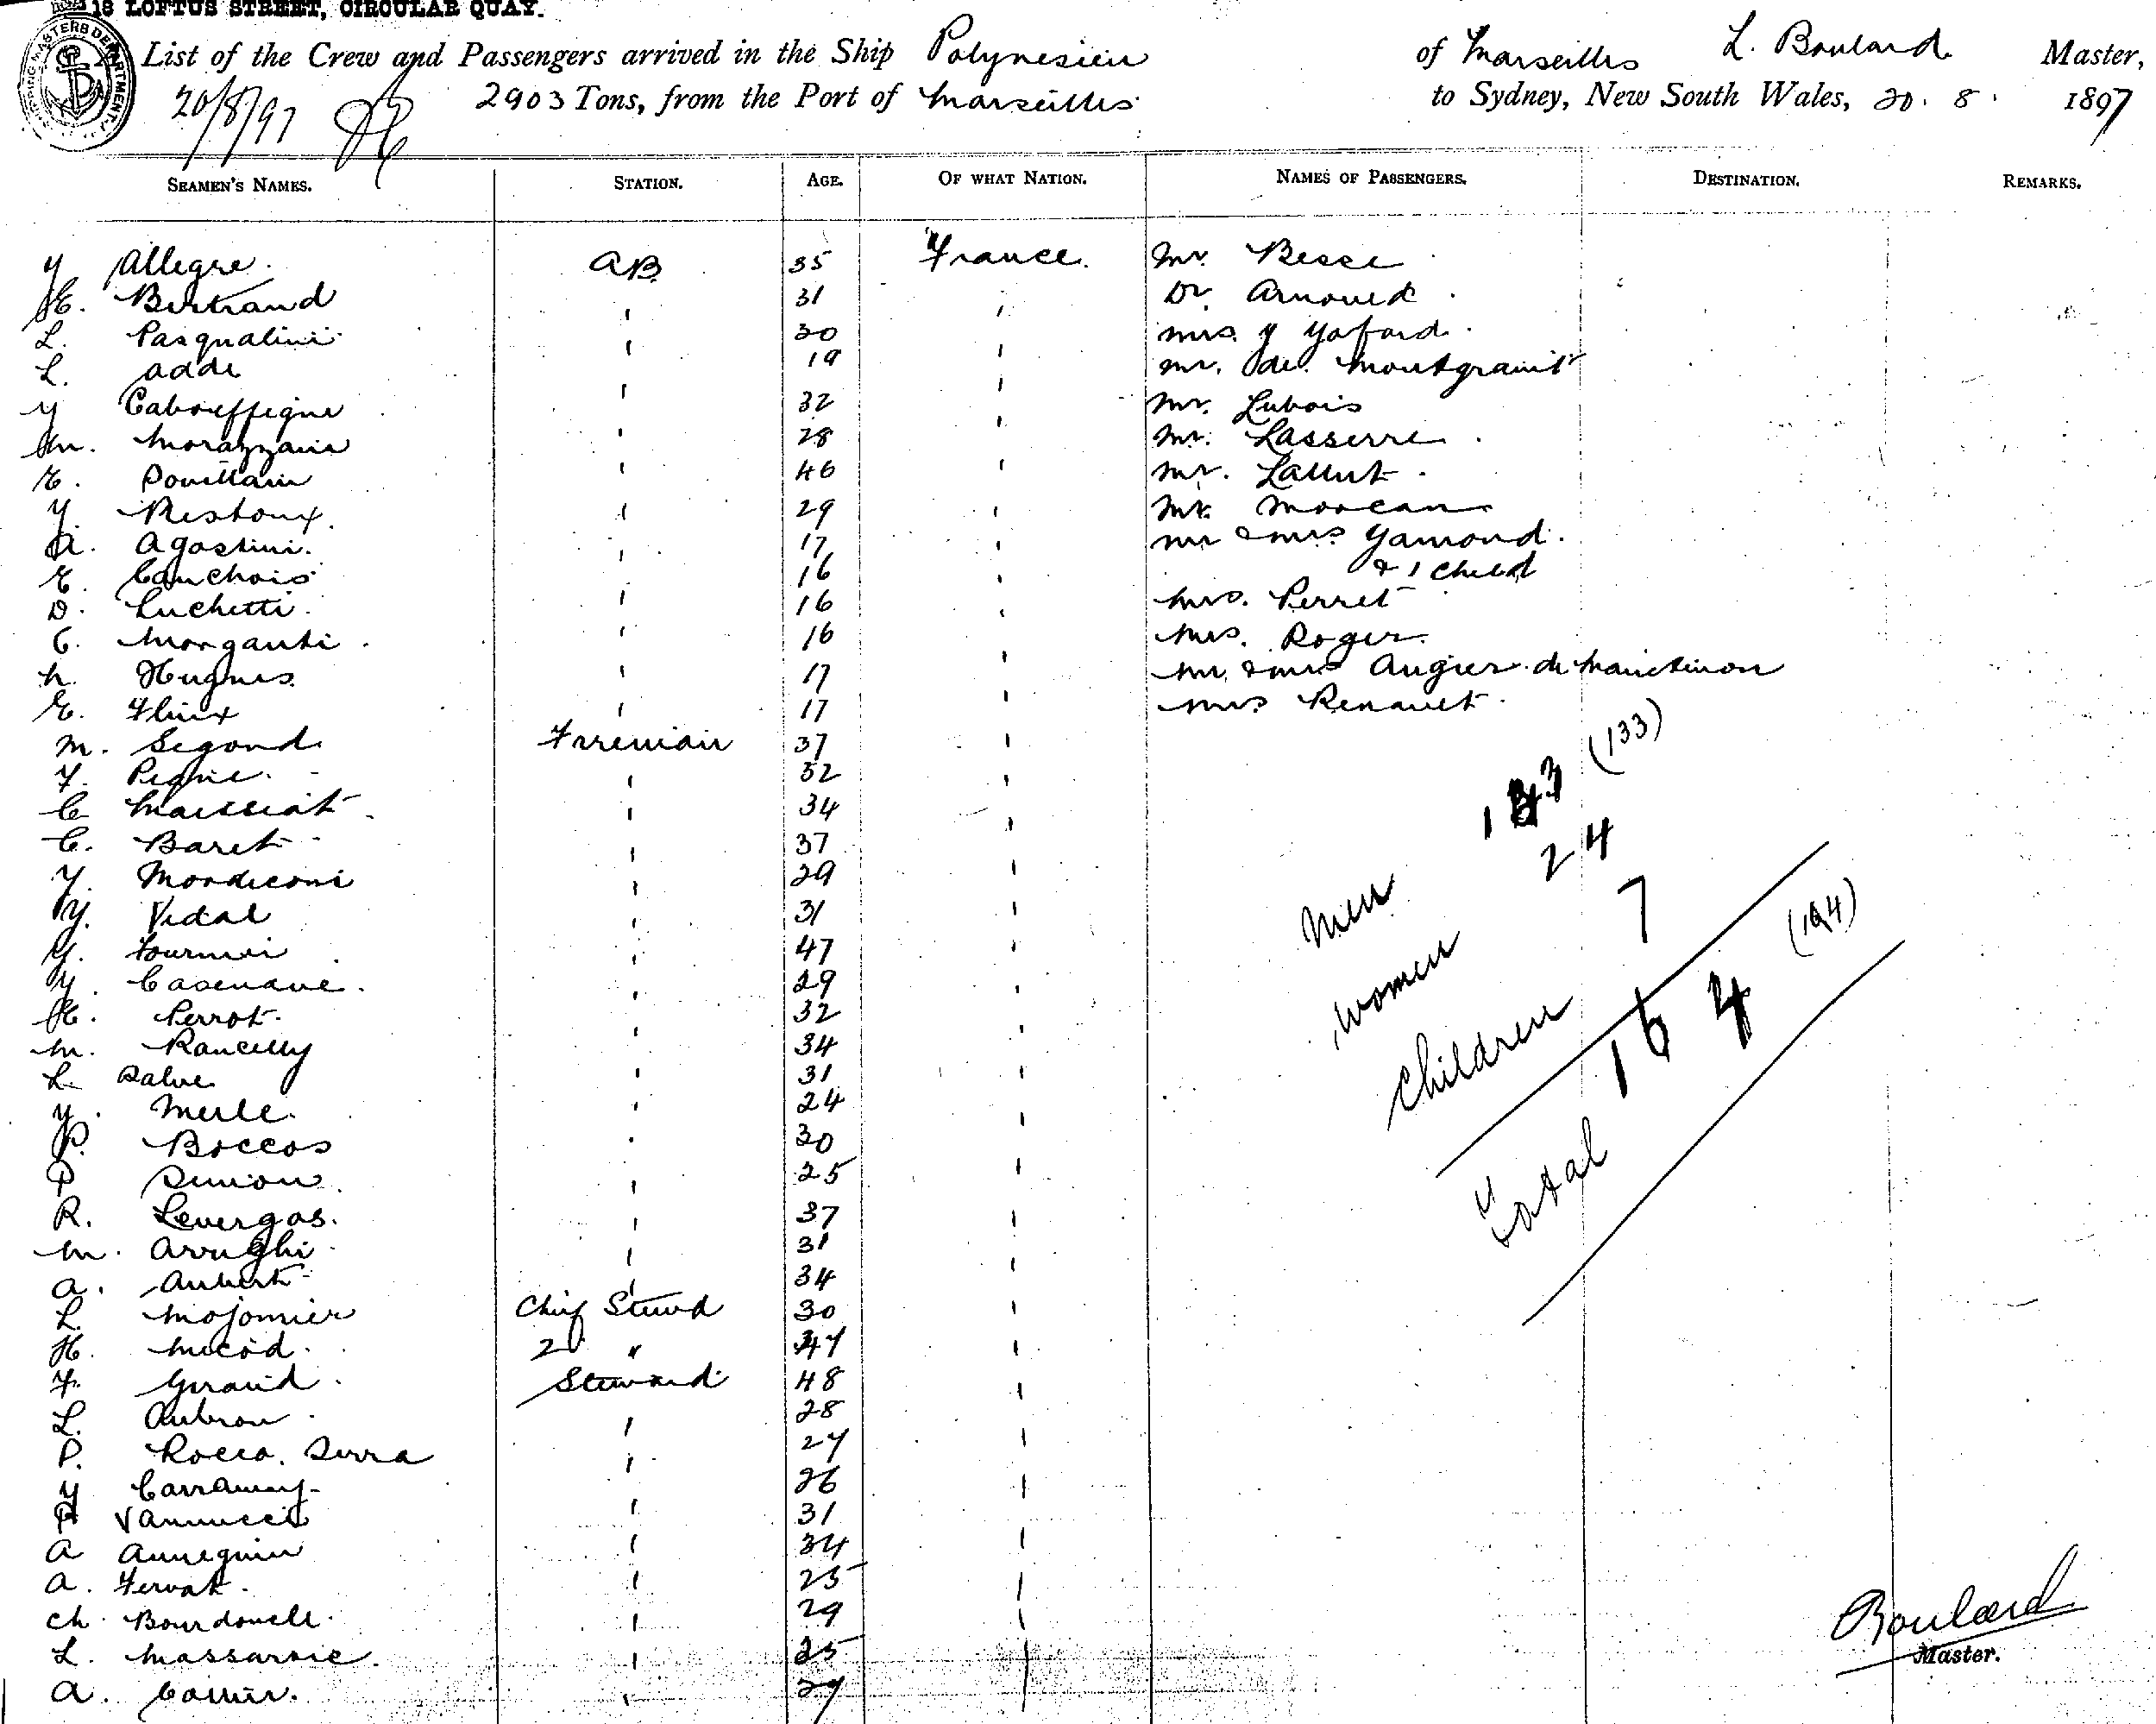 18 LOFTUS STREET, CIRCULAR QUAY.
List of the Crew and Passengers arrived in the Ship Polynesien of Marseilles L. Boulard Master,
20/8/97 2903 Tons, from the Port of Marseilles to Sydney, New South Wales, 20. 8. 1897
SEAMEN'S NAMES. STATION. AGE. OF WHAT NATION. NAMES OF PASSENGERS. DESTINATION. REMARKS.
Y Allegre. AB 35 France. Mr. Besse
E. Bertrand ' 31 ' Dr. Arnould
L. Pasqualini ' 30 ' Mrs. Y Yoford
L. Adde ' 19 ' Mr. de
Y ' 32 ' Mr. Lubois
M. Morazzani ' 28 ' Mr. Lasserre
E. Pouillain ' 46 ' Mr. Lallut
Y. Restoux. ' 29 ' Mr. Morean
A. Agostini. ' 17 ' Mr & Mrs Yamond.
E. Cauchois ' 16 ' & 1 child
D. Luchetti. ' 16 ' Mrs. Perret
C. Morganti ' 16 Mrs. Roger.
h. Hugues ' 17 ' Mr. & Mrs Augier de
E. ' 17 ' Mrs Renault
M. Segond Fireman 37 '
F. ' 32 '
C ' 34 '
C. Baret ' 37 '
Y. Mordiconi ' 29 '
Y. Vidal ' 31 '
Y. ' 47 '
Y. Casenave. ' 29 '
H. Perrot. ' 32 '
M. Rancelly ' 34 '
L. Salve ' 31 '
Y. Merle. ' 24 '
P. Boccos ' 30 '
P ' 25 '
R. Levergos. ' 37 '
M. Arrighi ' 31 '
A. Aubert ' 34 '
L. Mojonnier Chief Steward 30 '
H. Micod. 2 " '
F. Giraud. Steward 48 '
L. Aubron ' 28 '
P. Rocca. Serra ' 27 '
Y ' 26 '
P Vannucci ' 31 '
A Annequin ' 34 '
A. Fervat. ' 25 '
Ch. Bourdouell. ' 29 '
L. ' 25 '
A. ' 27 '
Men (133)
Women 24
Children 7
Total 164 (194)
Boulard
Master.